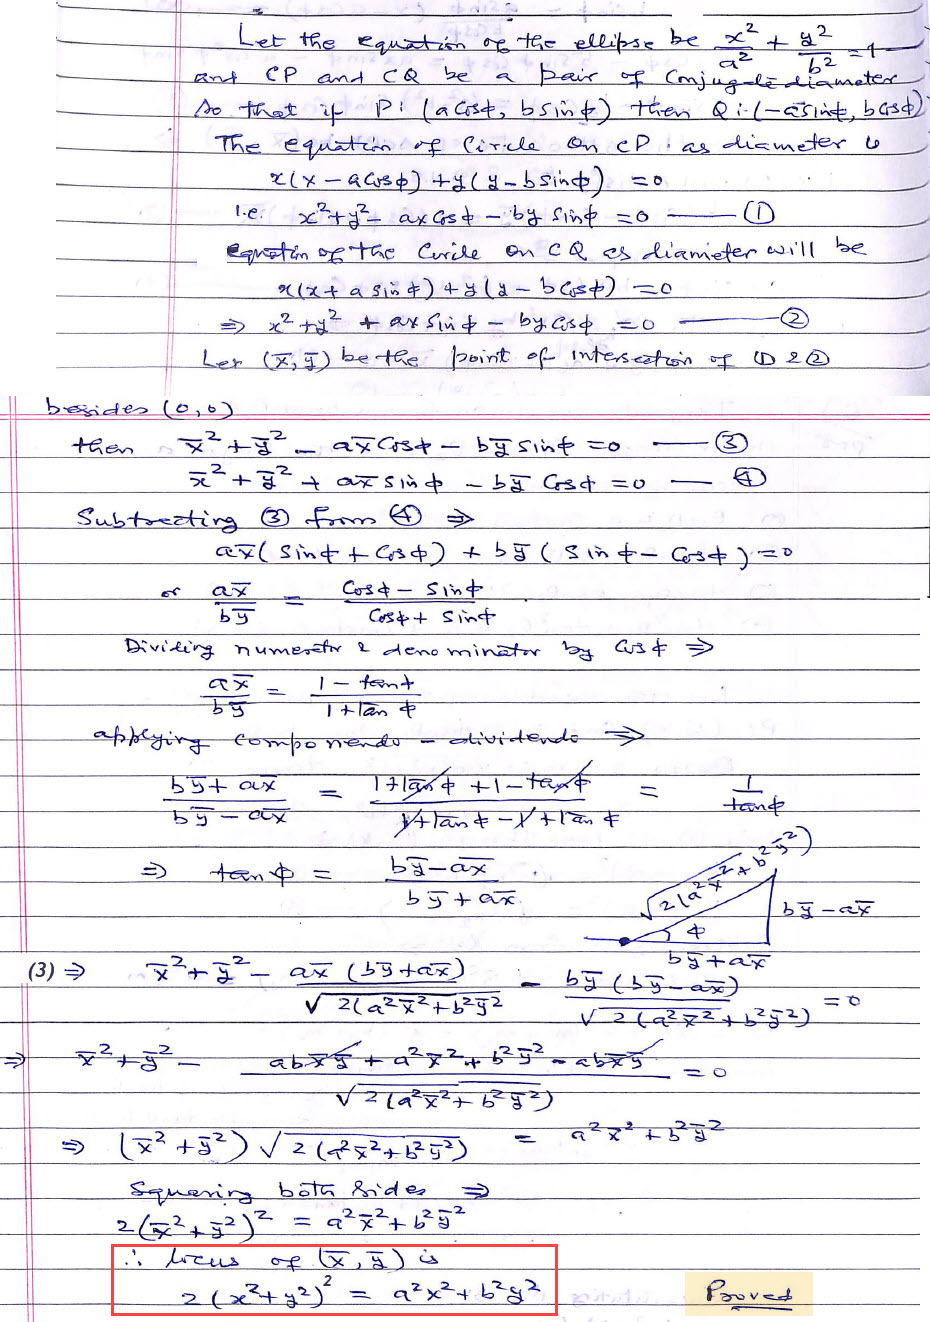 Let the equation of the ellipse be x²/a² + y²/b² = 1
and CP and CQ be a pair of conjugate diameter
so that if P: (a cosϕ, b sinϕ) then Q: (-a sinϕ, b cosϕ)
The equation of Circle on CP as diameter is
x(x - a cosϕ) + y(y - b sinϕ) = 0
i.e. x² + y² - ax cosϕ - by sinϕ = 0 —— ①
equation of the Circle on CQ as diameter will be
x(x + a sinϕ) + y(y - b cosϕ) = 0
⇒ x² + y² + ax sinϕ - by cosϕ = 0 —— ②
Let (x̄, ȳ) be the point of intersection of ① & ②
besides (0,0)
then x̄² + ȳ² - ax̄ cosϕ - bȳ sinϕ = 0 —— ③
x̄² + ȳ² + ax̄ sinϕ - bȳ cosϕ = 0 —— ④
Subtracting ③ from ④ ⇒
ax̄(sinϕ + cosϕ) + bȳ(sinϕ - cosϕ) = 0
or ax̄/bȳ = (cosϕ - sinϕ)/(cosϕ + sinϕ)
Dividing numerator & denominator by cosϕ ⇒
ax̄/bȳ = (1 - tanϕ)/(1 + tanϕ)
applying componendo - dividendo ⇒
(bȳ + ax̄)/(bȳ - ax̄) = (1 + tanϕ + 1 - tanϕ)/(1 + tanϕ - 1 + tanϕ) = 1/tanϕ
⇒ tanϕ = (bȳ - ax̄)/(bȳ + ax̄).
√2(a²x̄² + b²ȳ²)
bȳ - ax̄
ϕ
bȳ + ax̄
(3) ⇒ x̄² + ȳ² - ax̄(bȳ + ax̄)/√2(a²x̄² + b²ȳ² - bȳ(bȳ - ax̄)/√2(a²x̄² + b²ȳ²) = 0
⇒ x̄² + ȳ² - (abx̄ȳ + a²x̄² + b²ȳ² - abx̄ȳ)/√2(a²x̄² + b²ȳ²) = 0
⇒ (x̄² + ȳ²)√2(a²x̄² + b²ȳ²) = a²x̄² + b²ȳ²
Squaring both sides ⇒
2(x̄² + ȳ²)² = a²x̄² + b²ȳ²
∴ locus of (x̄, ȳ) is
2(x² + y²)² = a²x² + b²y²
Proved